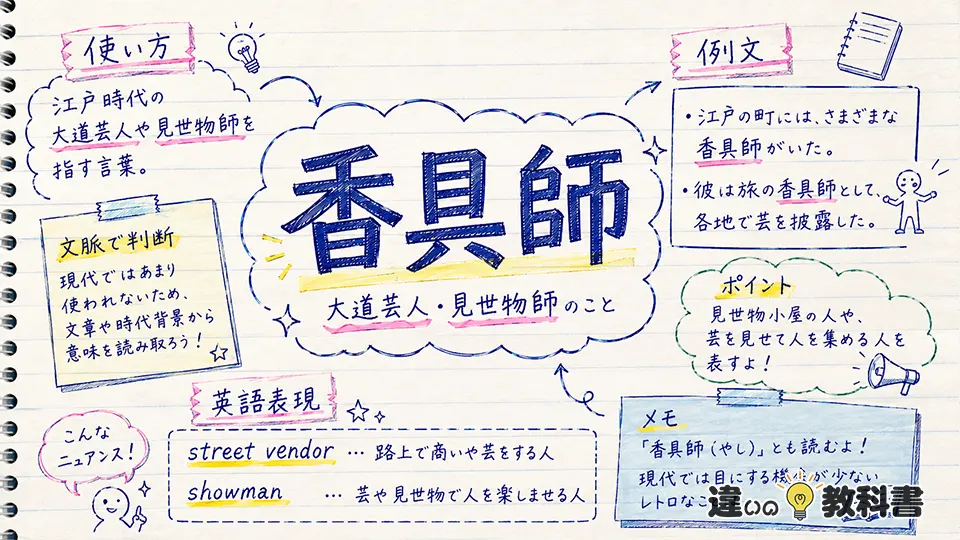 使い方
江戸時代の
大道芸人や見世物師を
指す言葉。
文脈で判断
現代ではあまり
使われないため、
文章や時代背景から
意味を読み取ろう!
香具師
大道芸人・見世物師のこと
例文
・江戸の町には、さまざまな
香具師がいた。
・彼は旅の香具師として、
各地で芸を披露した。
ポイント
見世物小屋の人や、
芸を見せて人を集める人を
表すよ!
英語表現
street vendor … 路上で商いや芸をする人
showman … 芸や見世物で人を楽しませる人
こんな
ニュアンス!
メモ
「香具師(やし)」とも読むよ!
現代では目にする機 が少ない
レトロなこ
違いの教科書